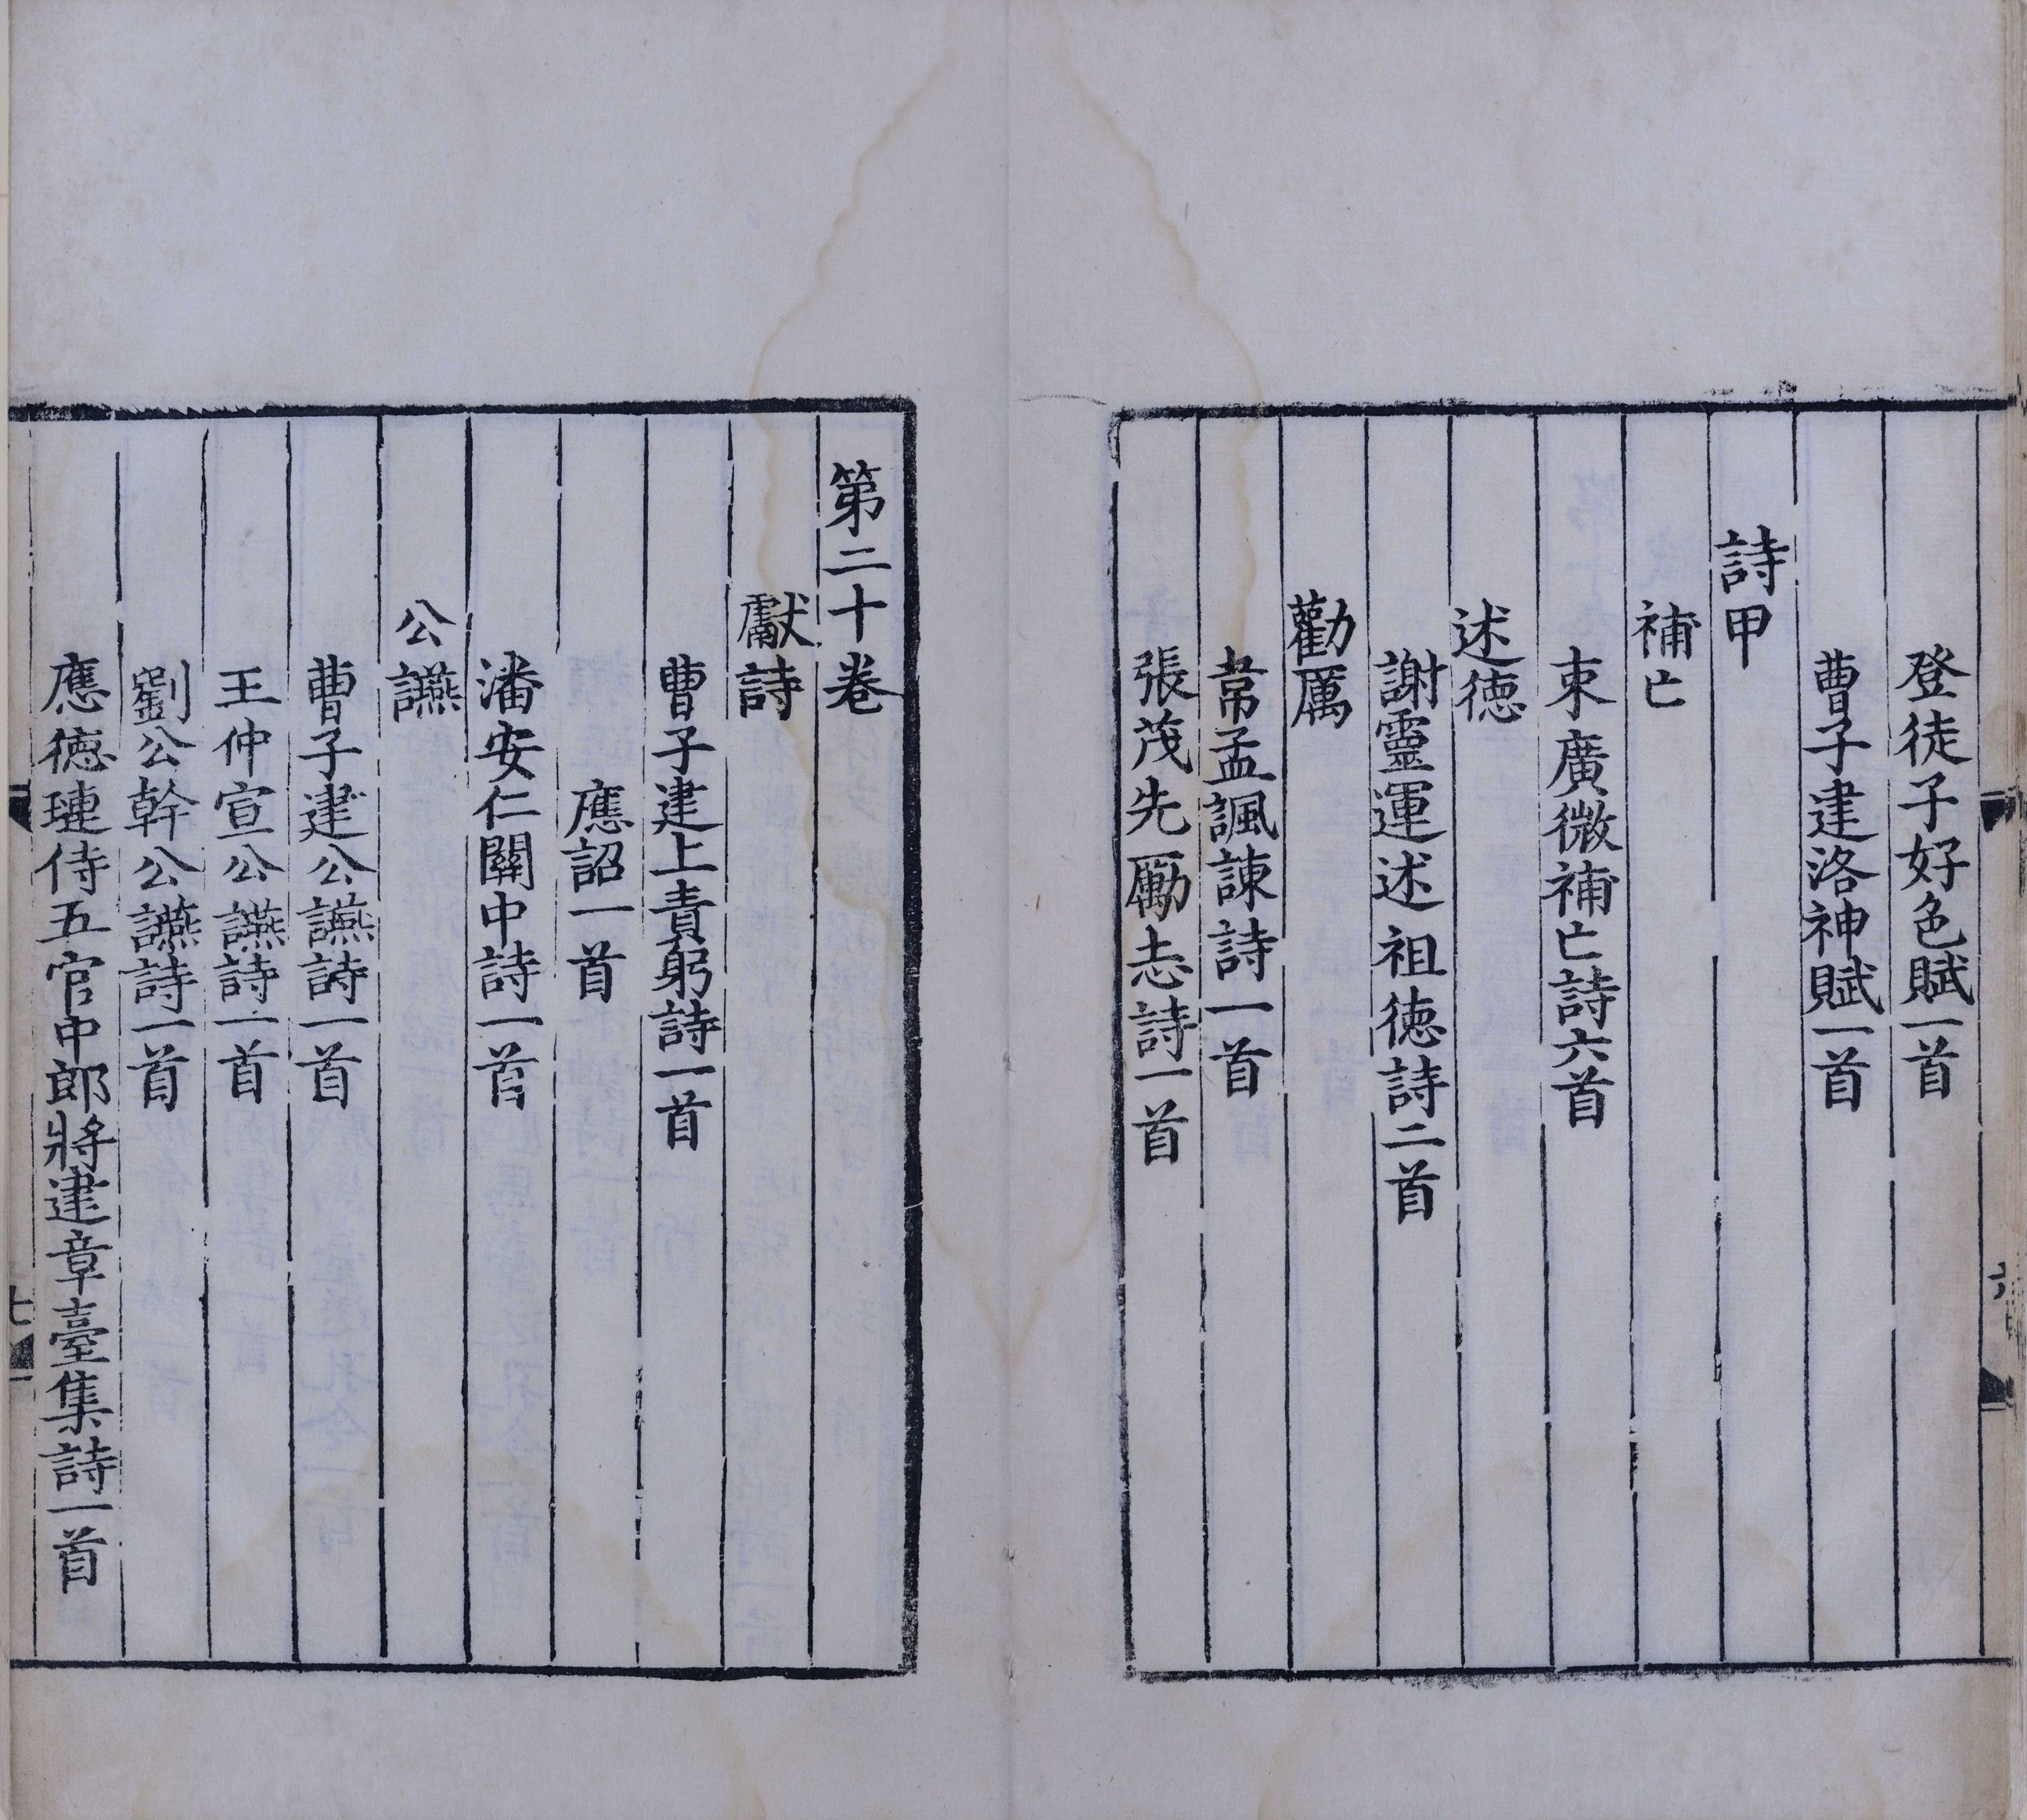 登徒子好色賦一首
曹子建洛神賦一首
詩甲
補亡
束廣微補亡詩六首
述德
謝靈運述祖德詩二首
勸厲
韋孟諷諫詩一首
張茂先勵志詩一首
第二十卷
獻詩
曹子建上責躬詩一首
應詔一首
潘安仁關中詩一首
公讌
曹子建公讌詩一首
王仲宣公讌詩一首
劉公幹公讌詩一首
應德璉侍五官中郎將建章臺集詩一首